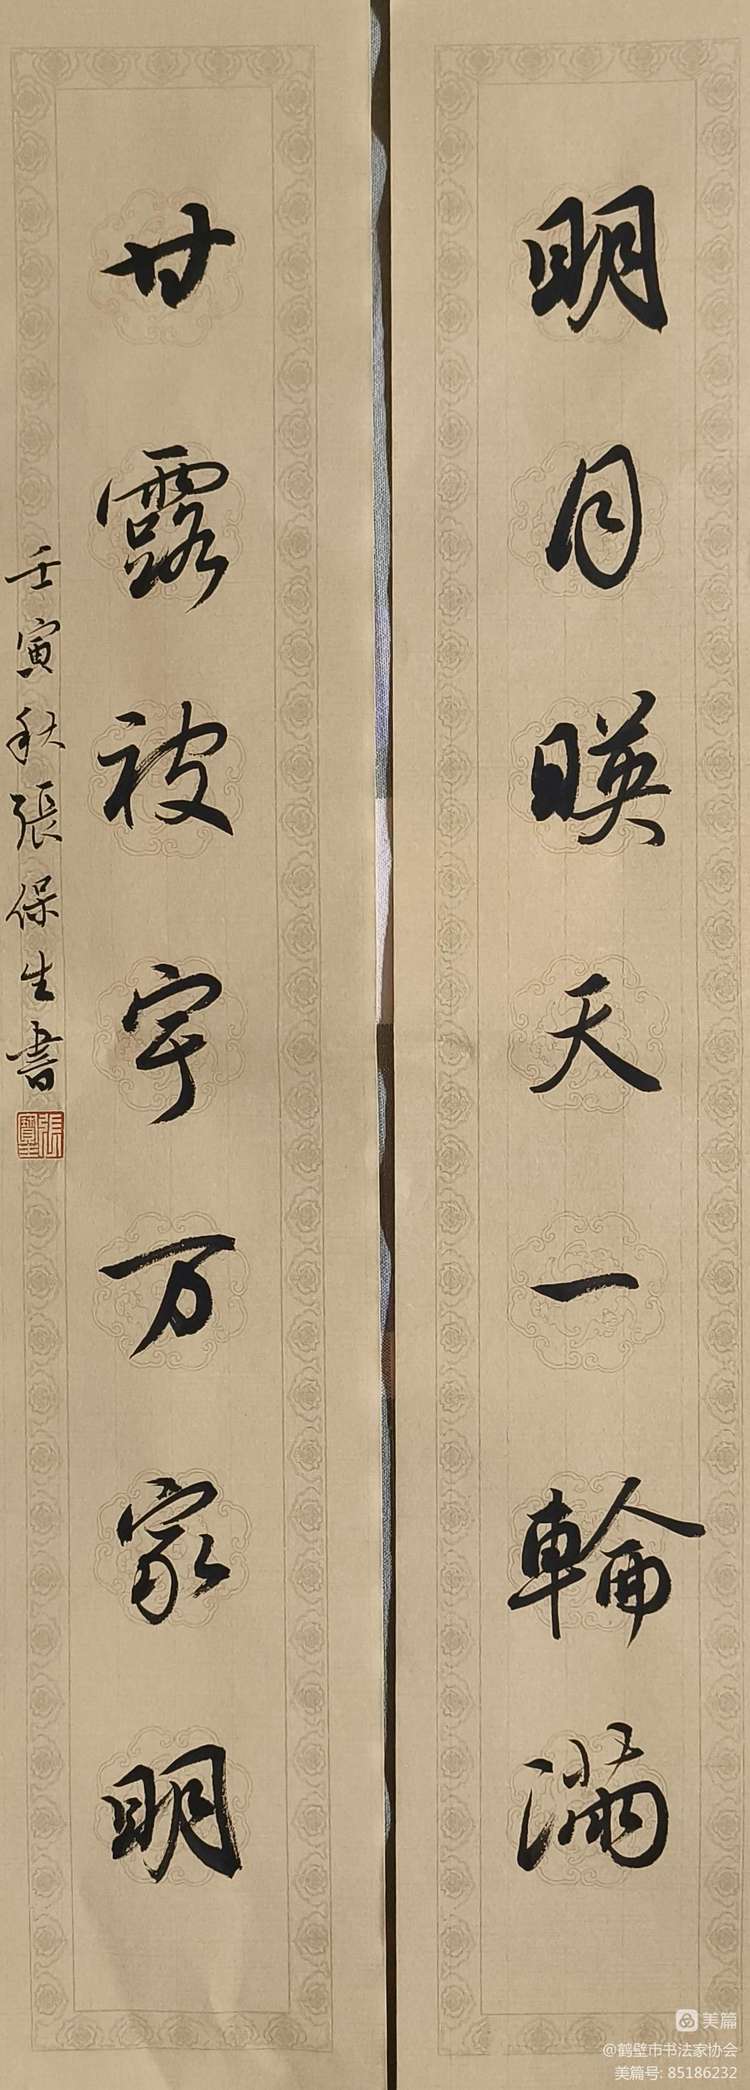 明月暎天一輪滿
甘露被宇万家明
壬寅秋張保生書
張寶生
美篇
@鹤壁市书法家协会
美篇号: 85186232